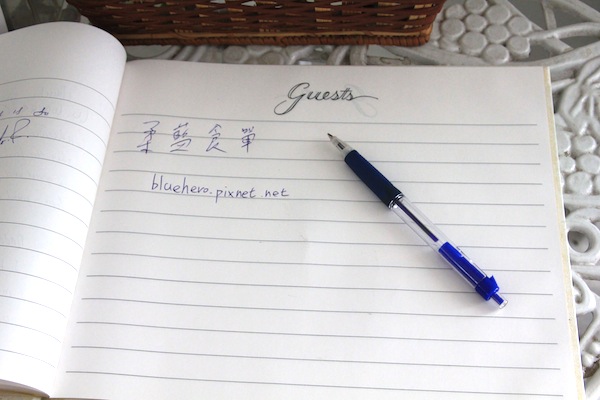 Guests
柔藍食單
bluehero.pixnet.net